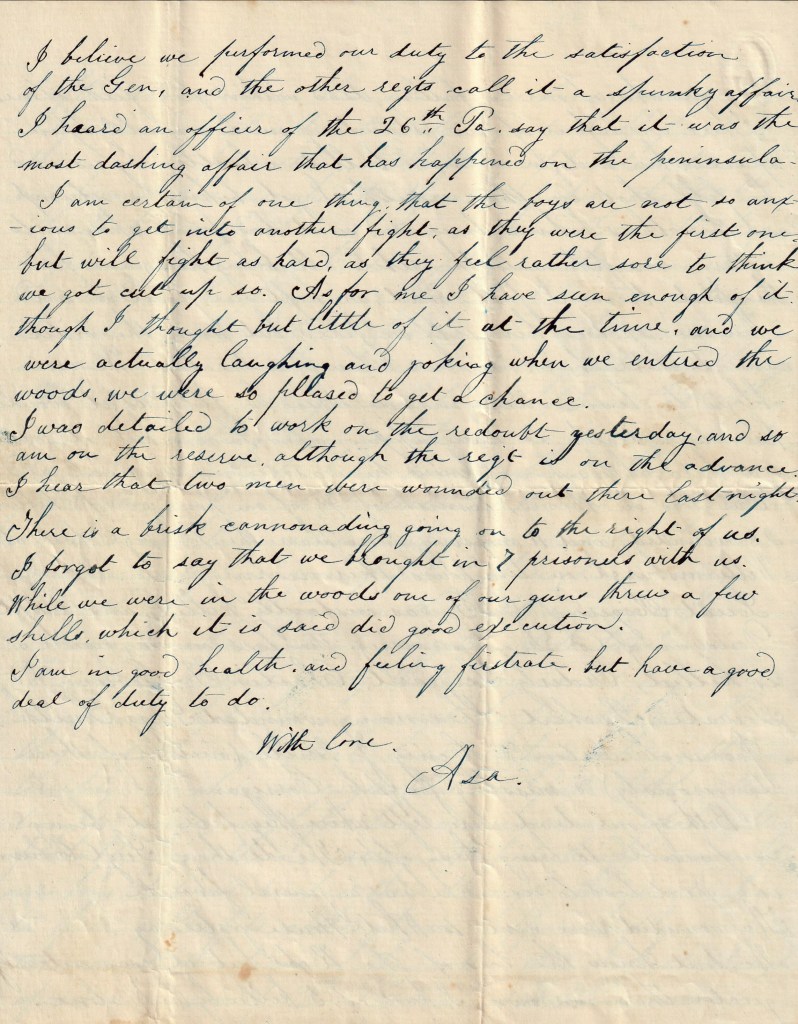 I believe we performed our duty to the satisfaction
of the Gen, and the other regts call it a spunky affair
I heard an officer of the 26th Pa. say that it was the
most dashing affair that has happened on the peninsula-
I am certain of one thing, that the boys are not so anx-
-ious to get into another fight, as they were the first one,
but will fight as hard, as they feel rather sore to think
we got cut up so. As for me I have seen enough of it.
though I thought but little of it at the time, and we
were actually laughing and joking when we entered the
woods, we were so pleased to get a chance.
I was detailed to work on the redoubt yesterday, and so
am on the reserve, although the regt is on the advance.
I hear that two men were wounded out there last night.
There is a brisk cannonading going on to the right of us.
I forgot to say that we brought in 7 prisoners with us.
While we were in the woods one of our guns threw a few
shells, which it is said did good execution.
I am in good health, and feeling firstrate, but have a good
deal of duty to do.
With love.
Asa.